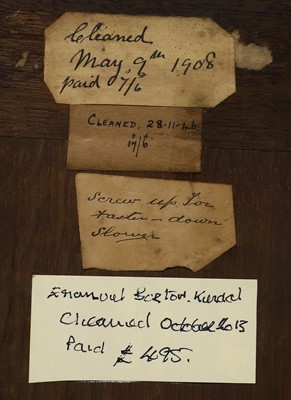 Cleaned
May 9th 1908
paid 7/6
CLEANED, 28-11-46
17/6
Screw up for
faster - down
slower
Emanuel Burton. Kendal
Cleaned October 2013
Paid £495.